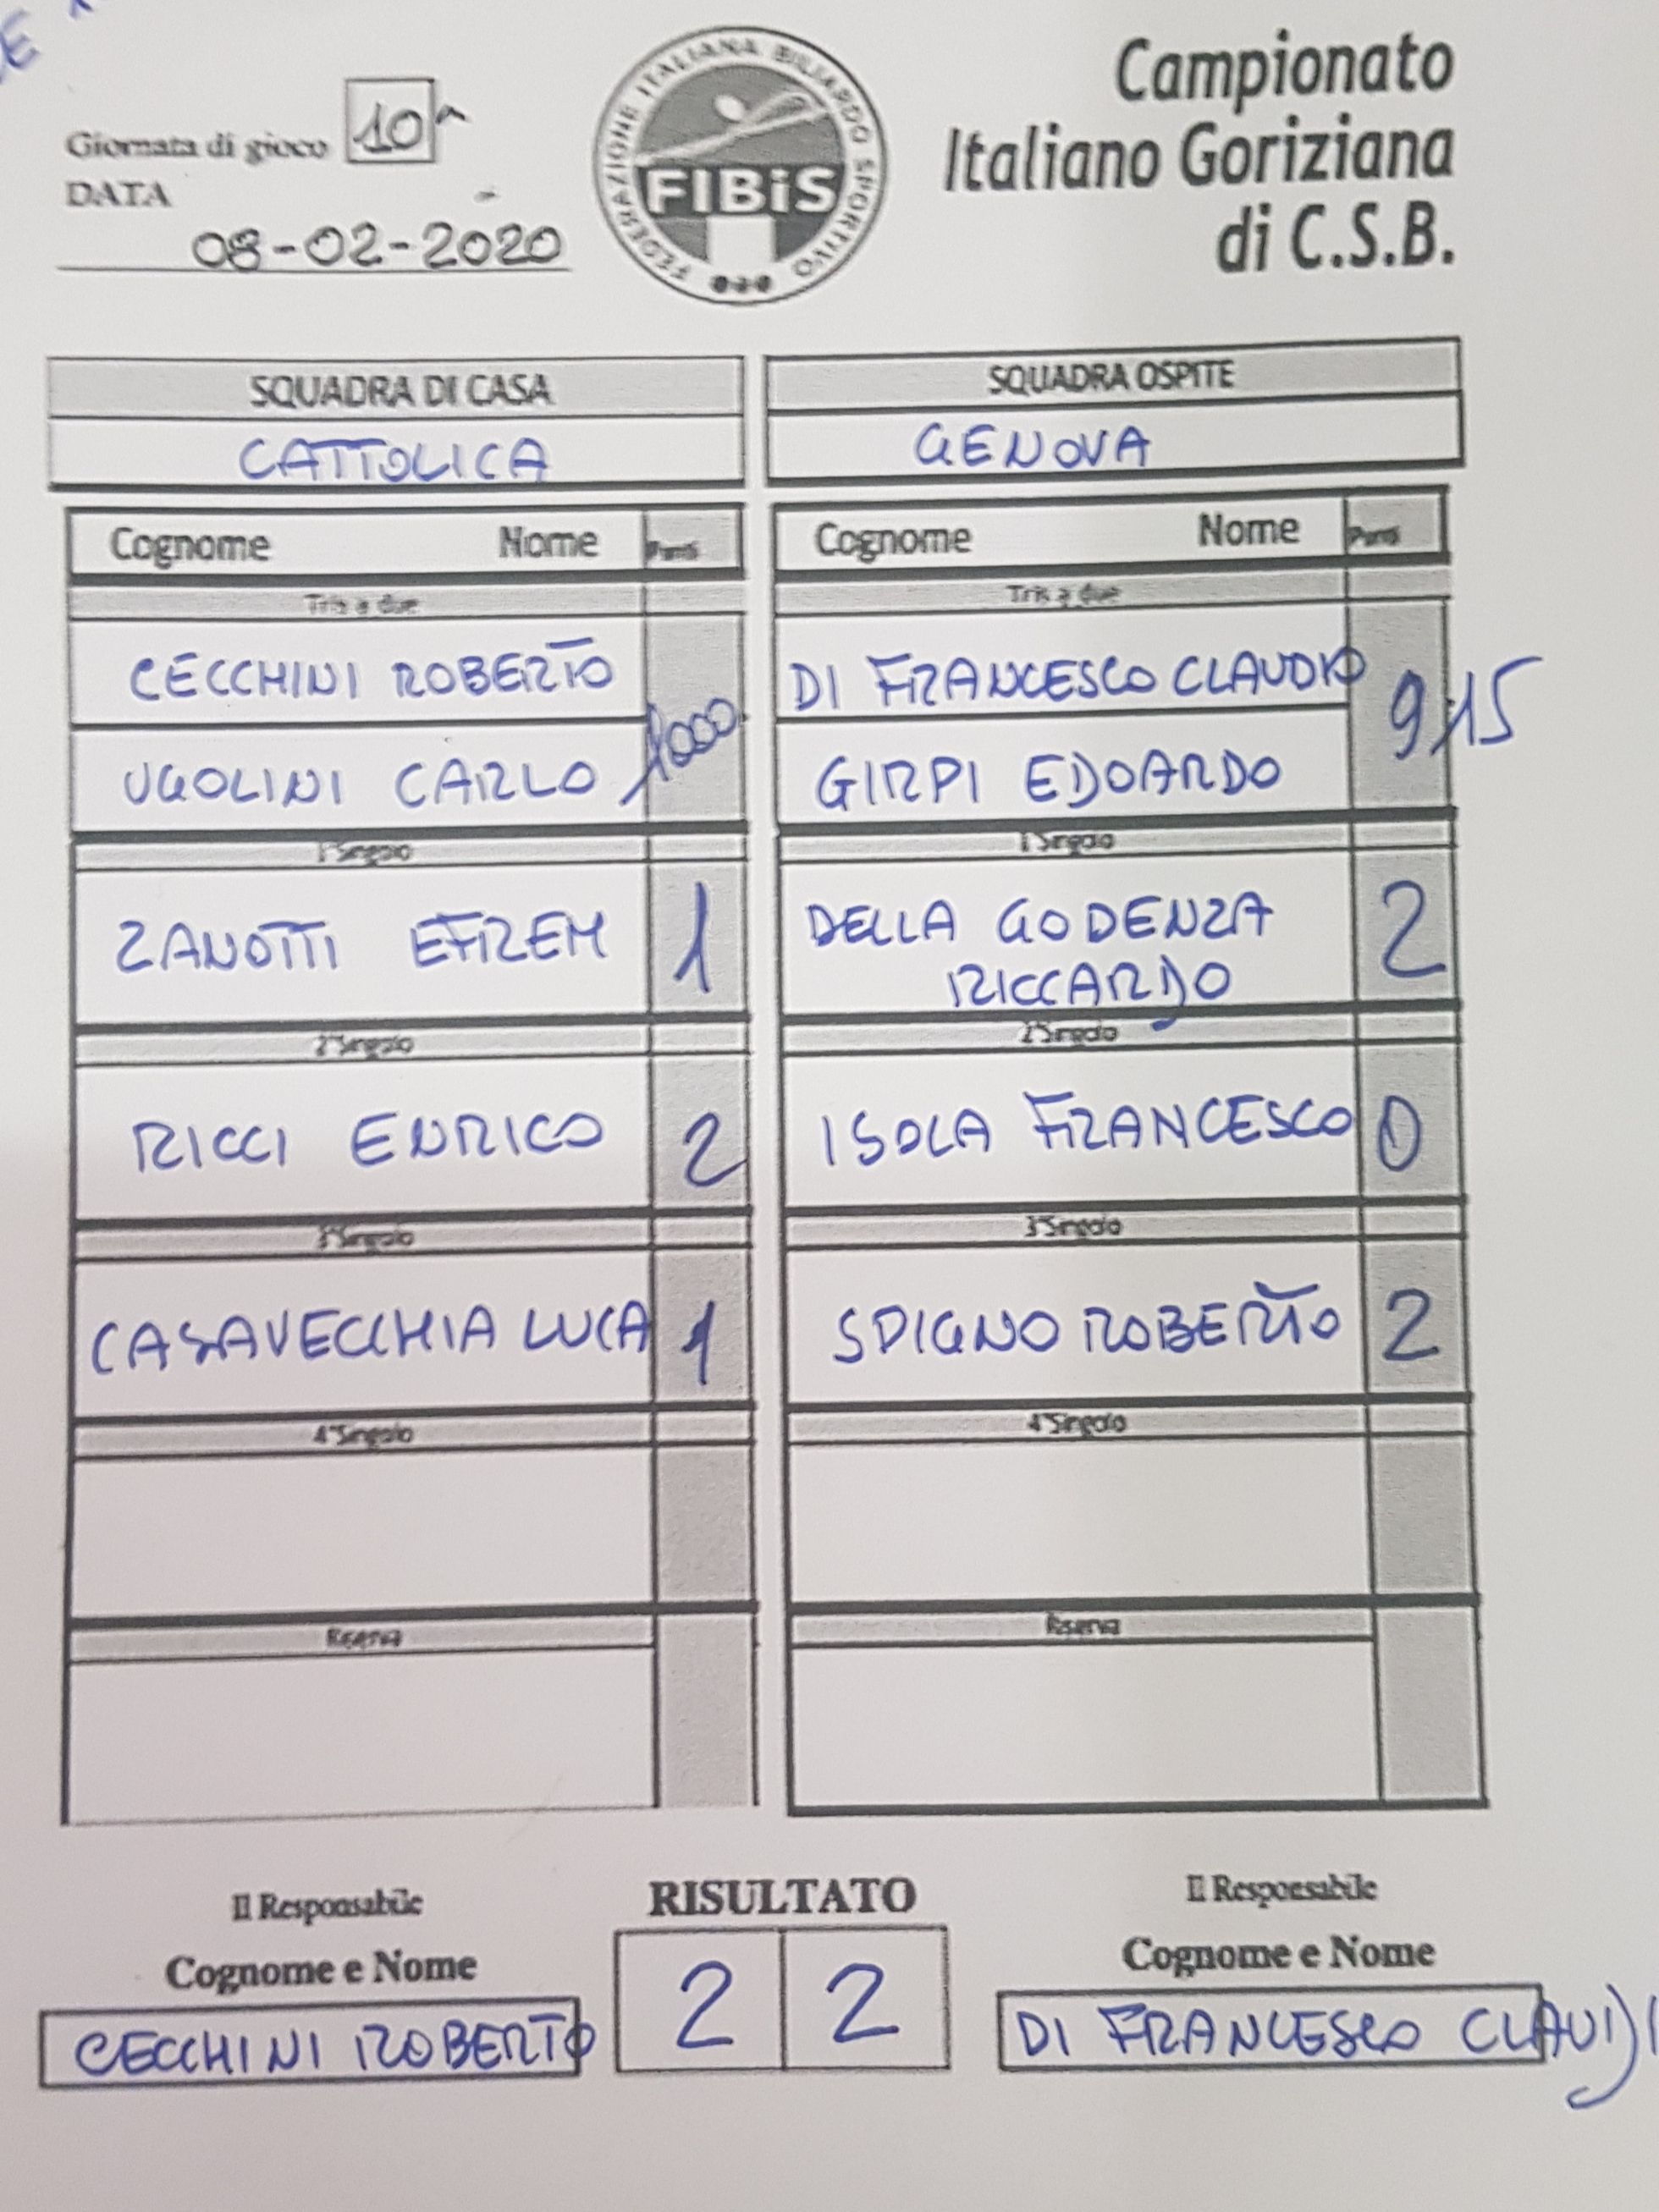 Giornata di gioco 10^
DATA
08-02-2020
FEDERAZIONE ITALIANA BILIARDO SPORTIVO
FIBiS
Campionato
Italiano Goriziana
di C.S.B.
SQUADRA DI CASA SQUADRA OSPITE
CATTOLICA GENOVA
Cognome Nome Punti Cognome Nome Punti
Tris a due Tris a due
CECCHINI ROBERTO DI FRANCESCO CLAUDIO
1000 915
UGOLINI CARLO GIRPI EDOARDO
1°Singolo 1°Singolo
ZANOTTI EFREM 1 DELLA GODENZA 2
RICCARDO
2°Singolo 2°Singolo
RICCI ENRICO 2 ISOLA FRANCESCO 0
3°Singolo 3°Singolo
CASAVECCHIA LUCA 1 SDIGNO ROBERTO 2
4°Singolo 4°Singolo
Riserva Riserva
Il Responsabile RISULTATO Il Responsabile
Cognome e Nome Cognome e Nome
CECCHINI ROBERTO 2 2 DI FRANCESCO